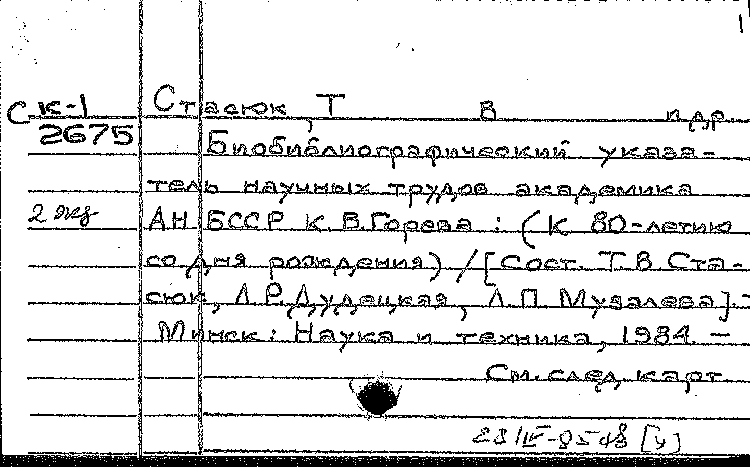 1
С к-1 Стасюк, Т В и др.
2675
Биобиблиографический указа-
тель научных трудов академика
2 экз АН БССР К. В. Горева : (К 80-летию
со дня рождения) / [Сост. Т. В. Ста-
сюк, Л. Р. Дудецкая, Л. П. Музалева]. -
Минск: Наука и техника, 1984. —
См. след. карт.